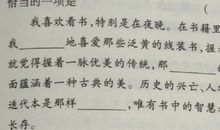 恰当的一项是 (
我喜欢看书,特别是在夜晚。在书籍里
我______地喜爱那些泛黄的线装书,握
就觉得握着一脉优美的传统,那______
面蕴涵着一种古典的美。历史的兴亡、人
迭代本是那样______,唯有书中的智慧
长存。